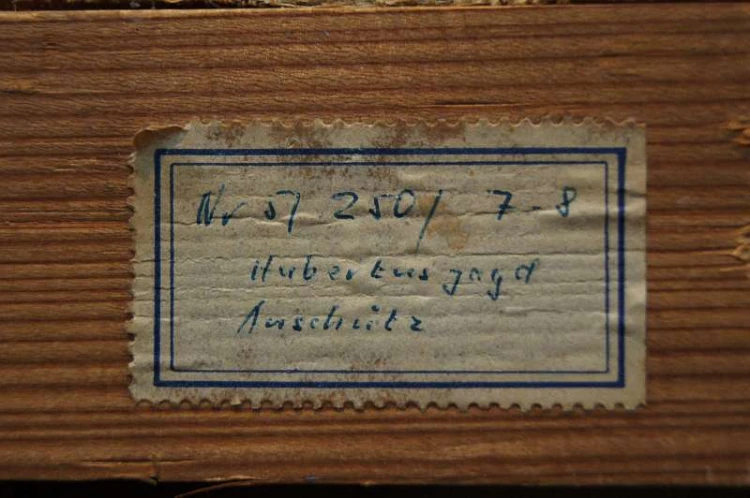 Nr 57 250/ 7-8
Hubertusjagd
Anschütz